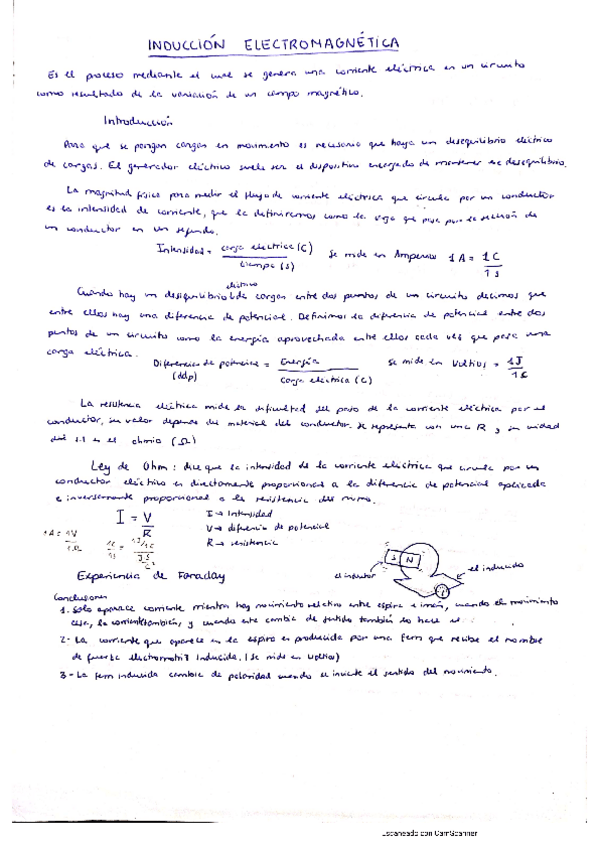 INDUCCIÓN ELECTROMAGNÉTICA
Es el proceso mediante el cual se genera una corriente eléctrica en un circuito
como resultado de la variación de un campo magnético.
Introducción
Para que se pongan cargas en movimiento es necesario que haya un desequilibrio eléctrico
de cargas. El generador eléctrico suele ser el dispositivo encargado de mantener ese desequilibrio.
La magnitud física para medir el flujo de corriente eléctrica que circula por un conductor
es la intensidad de corriente, que la definiremos como la carga que pasa por la sección de
un conductor en un segundo.
Intensidad = carga electrica (C) / tiempo (s) Se mide en Amperios 1 A = 1 C / 1 s
eléctrico
Cuando hay un desequilibrio de cargas entre dos puntos de un circuito decimos que
entre ellos hay una diferencia de potencial. Definimos la diferencia de potencial entre dos
puntos de un circuito como la energía aprovechada entre ellos cada vez que pasa una
carga eléctrica.
Diferencia de potencial = Energía / Carga electrica (C) Se mide en Voltios = 1J /
(ddp)
La resistencia eléctrica mide la dificultad del paso de la corriente eléctrica por el
conductor, su valor depende del material del conductor. Se representa con una R y su unidad
del S.I es el ohmio (Ω)
Ley de Ohm: dice que la intensidad de la corriente eléctrica que circula por un
conductor eléctrico es directamente proporcional a la diferencia de potencial aplicada
e inversamente proporcional a la resistencia del mismo.
I = V / R
I → Intensidad
V → diferencia de potencial
R → resistencia
1A = 1V / 1Ω
Experiencia de Faraday
el inductor
S N
el inducido
Conclusiones
1. Solo aparece corriente mientras hay movimiento relativo entre espira e imán, cuando el movimiento
cesa, la corriente también, y cuando este cambia de sentido también lo hace el
2- La corriente que aparece en la espira es producida por una fem que recibe el nombre
de fuerza electromotriz Inducida. (Se mide en Voltios)
3- La fem inducida cambia de polaridad cuando se invierte el sentido del movimiento.
Escaneado con CamScanner